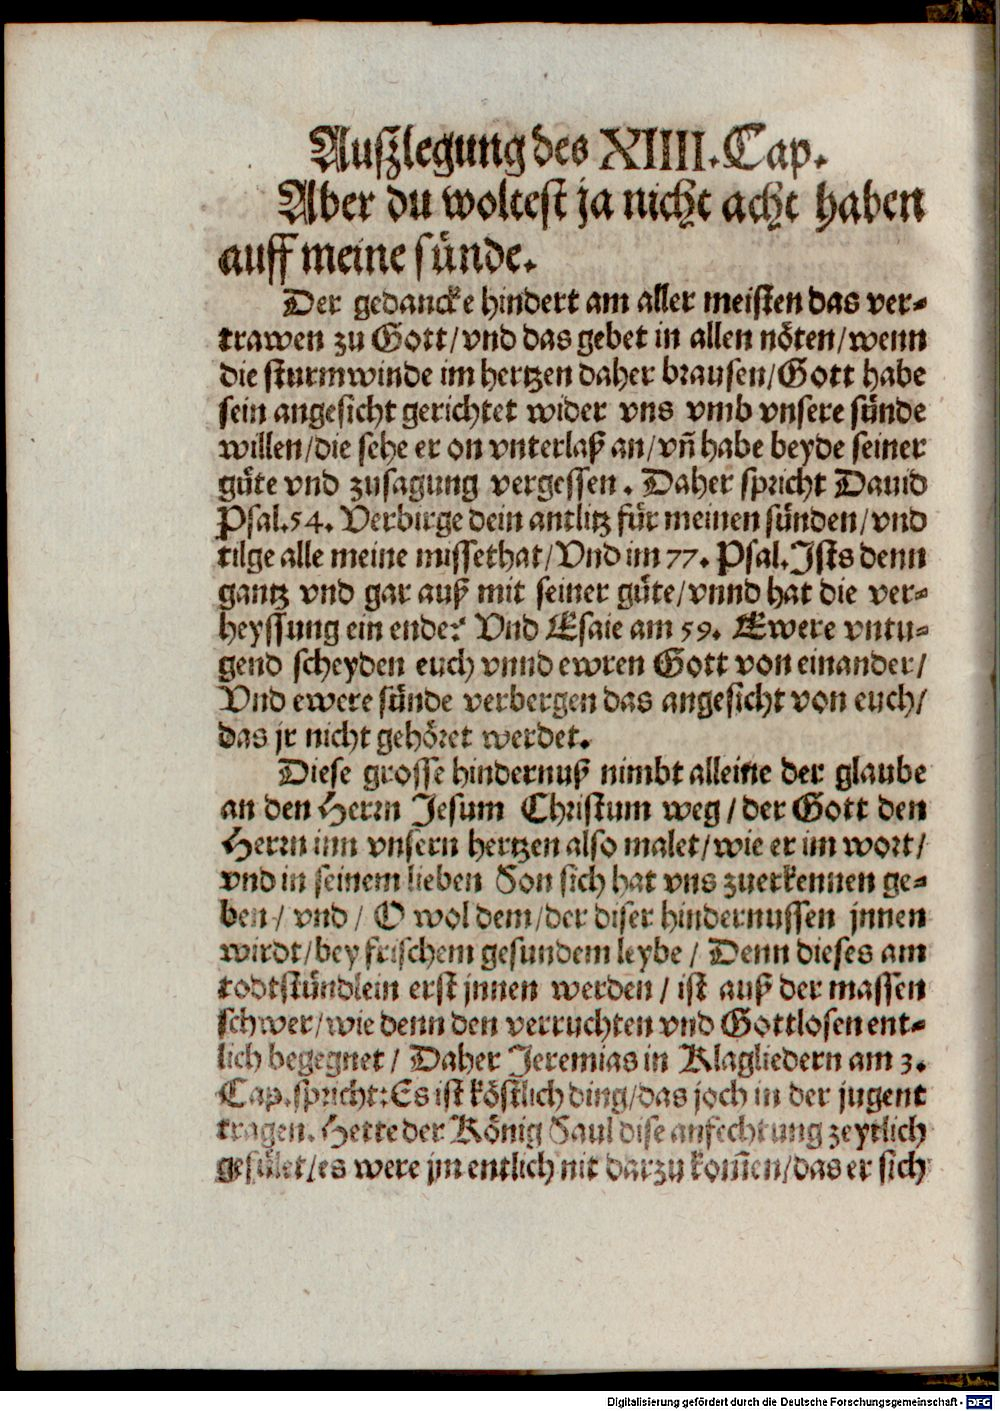 Auſzlegung des XIIII. Cap.
Aber du wolteſt ja nicht acht haben
auff meine ſünde.
Der gedancke hindert am aller meiſten das ver-
trawen zu Gott/ vnd das gebet in allen nöten/ wenn
die ſturmwinde im hertzen daher brauſen/ Gott habe
ſein angeſicht gerichtet wider vns vmb vnſere ſünde
willen/ die ſehe er on vnterlaß an/ vñ habe beyde ſeiner
güte vnd zuſagung vergeſſen. Daher ſpricht Dauid
Pſal. 54. Verbirge dein antlitz für meinen ſünden/ vnd
tilge alle meine miſſethat/ Vnd im 77. Pſal. Iſts denn
gantz vnd gar auß mit ſeiner güte/ vnnd hat die ver-
heyſſung ein ende? Vnd Eſaie am 59. Ewere vntu-
gend ſcheyden euch vnnd ewren Gott von einander/
Vnd ewere ſünde verbergen das angeſicht von euch/
das jr nicht gehöret werdet.
Dieſe groſſe hindernuß nimbt alleine der glaube
an den Herrn Jeſum Chriſtum weg/ der Gott den
Herrn inn vnſern hertzen alſo malet/ wie er im wort/
vnd in ſeinem lieben Son ſich hat vns zuerkennen ge-
ben/ vnd/ O wol dem/ der diſer hindernuſſen jnnen
wirdt/ bey friſchem geſundem leybe/ Denn dieſes am
todtſtündlein erſt jnnen werden/ iſt auß der maſſen
ſchwer/ wie denn den verruchten vnd Gottloſen ent-
lich begegnet/ Daher Jeremias in Klagliedern am 3.
Cap. ſpricht: Es iſt köſtlich ding/ das joch in der jugent
tragen. Hette der König Saul diſe anfechtung zeytlich
gefület/ es were jm entlich nit darzu kom̄en/ das er ſich
Digitalisierung gefördert durch die Deutsche Forschungsgemeinschaft - DFG